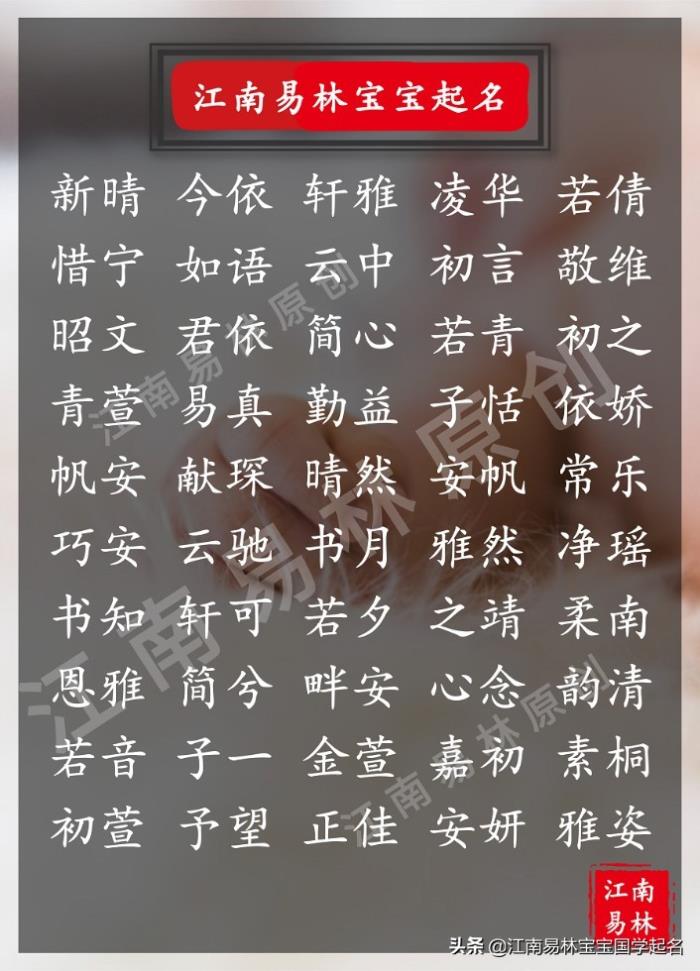 江南易林宝宝起名
新晴 今依 轩雅 凌华 若倩
惜宁 如语 云中 初言 敬维
昭文 君依 简心 若青 初之
青萱 易真 勤益 子恬 依娇
帆安 献琛 晴然 安帆 常乐
巧安 云驰 书月 雅然 净瑶
书知 轩可 若夕 之靖 柔南
恩雅 简兮 畔安 心念 韵清
若音 子一 金萱 嘉初 素桐
初萱 予望 正佳 安妍 雅姿
江南易林原创
江南易林原创
江南易林原创
江南
易林
头条 @江南易林宝宝国学起名